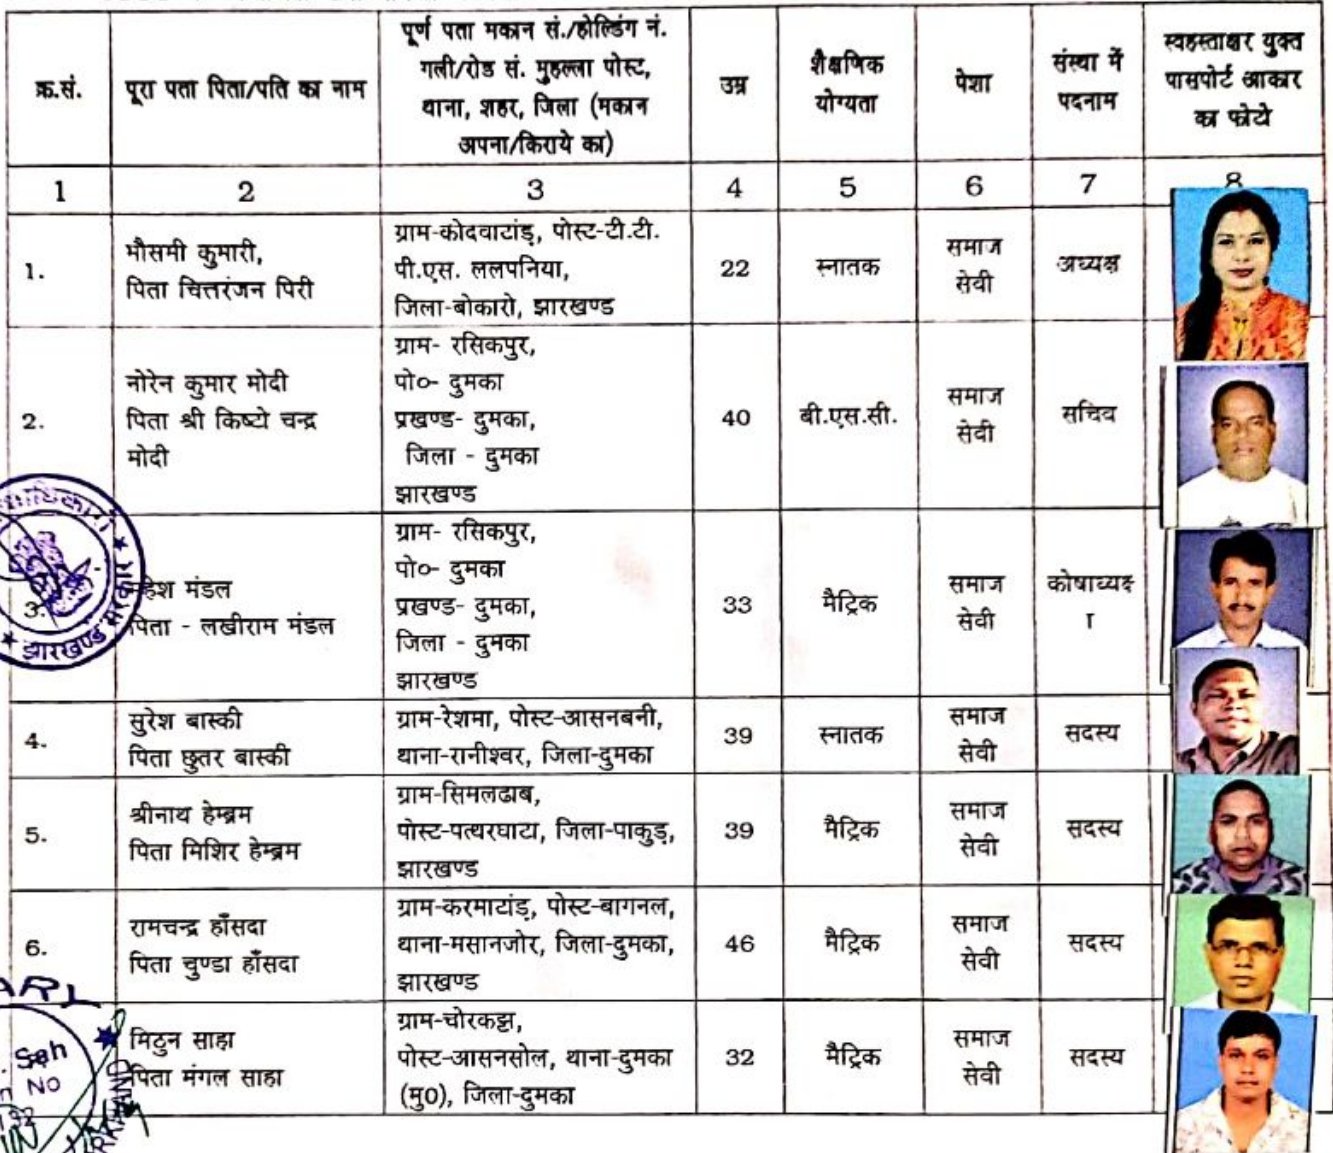 क्र.सं.
पूरा पता पिता/पति का नाम
पूर्ण पता मकान सं./होल्डिंग नं.
गली/रोड सं. मुहल्ला पोस्ट,
थाना, शहर, जिला (मकान
अपना/किराये का)
उम्र
शैक्षणिक
योग्यता
पेशा
संस्था में
पदनाम
स्वहस्ताक्षर युक्त
पासपोर्ट आकार
का फोटो
1 2 3 4 5 6 7 8
1.
भौसमी कुमारी,
पिता चित्तरंजन पिरी
ग्राम-कोदवाटांड़, पोस्ट-टी.टी.
पी.एस. ललपनिया,
जिला-बोकारो, झारखण्ड
22
स्नातक
समाज
सेवी
अध्यक्ष
2.
नोरेन कुमार मोदी
पिता श्री किष्टो चन्द्र
मोदी
ग्राम- रसिकपुर,
पो०- दुमका
प्रखण्ड- दुमका,
जिला - दुमका
झारखण्ड
40
बी.एस.सी.
समाज
सेवी
सचिव
3.
हेश मंडल
पिता - लखीराम मंडल
ग्राम- रसिकपुर,
पो०- दुमका
प्रखण्ड- दुमका,
जिला - दुमका
झारखण्ड
33
मैट्रिक
समाज
सेवी
कोषाध्यक्ष
ा
झारखण्ड सरकार
4.
सुरेश बास्की
पिता छुतर बास्की
ग्राम-रेशमा, पोस्ट-आसनबनी,
थाना-रानीश्वर, जिला-दुमका
39
स्नातक
समाज
सेवी
सदस्य
5.
श्रीनाथ हेम्ब्रम
पिता मिशिर हेम्ब्रम
ग्राम-सिमलढाब,
पोस्ट-पत्थरघाटा, जिला-पाकुड़,
झारखण्ड
39
मैट्रिक
समाज
सेवी
सदस्य
6.
रामचन्द्र हाँसदा
पिता चुण्डा हाँसदा
ग्राम-करमाटांड़, पोस्ट-बागनल,
थाना-मसानजोर, जिला-दुमका,
झारखण्ड
46
मैट्रिक
समाज
सेवी
सदस्य
मिठुन साहा
पिता मंगल साहा
ग्राम-चोरकट्टा,
पोस्ट-आसनसोल, थाना-दुमका
(मु0), जिला-दुमका
32
मैट्रिक
समाज
सेवी
सदस्य
Sah
NO